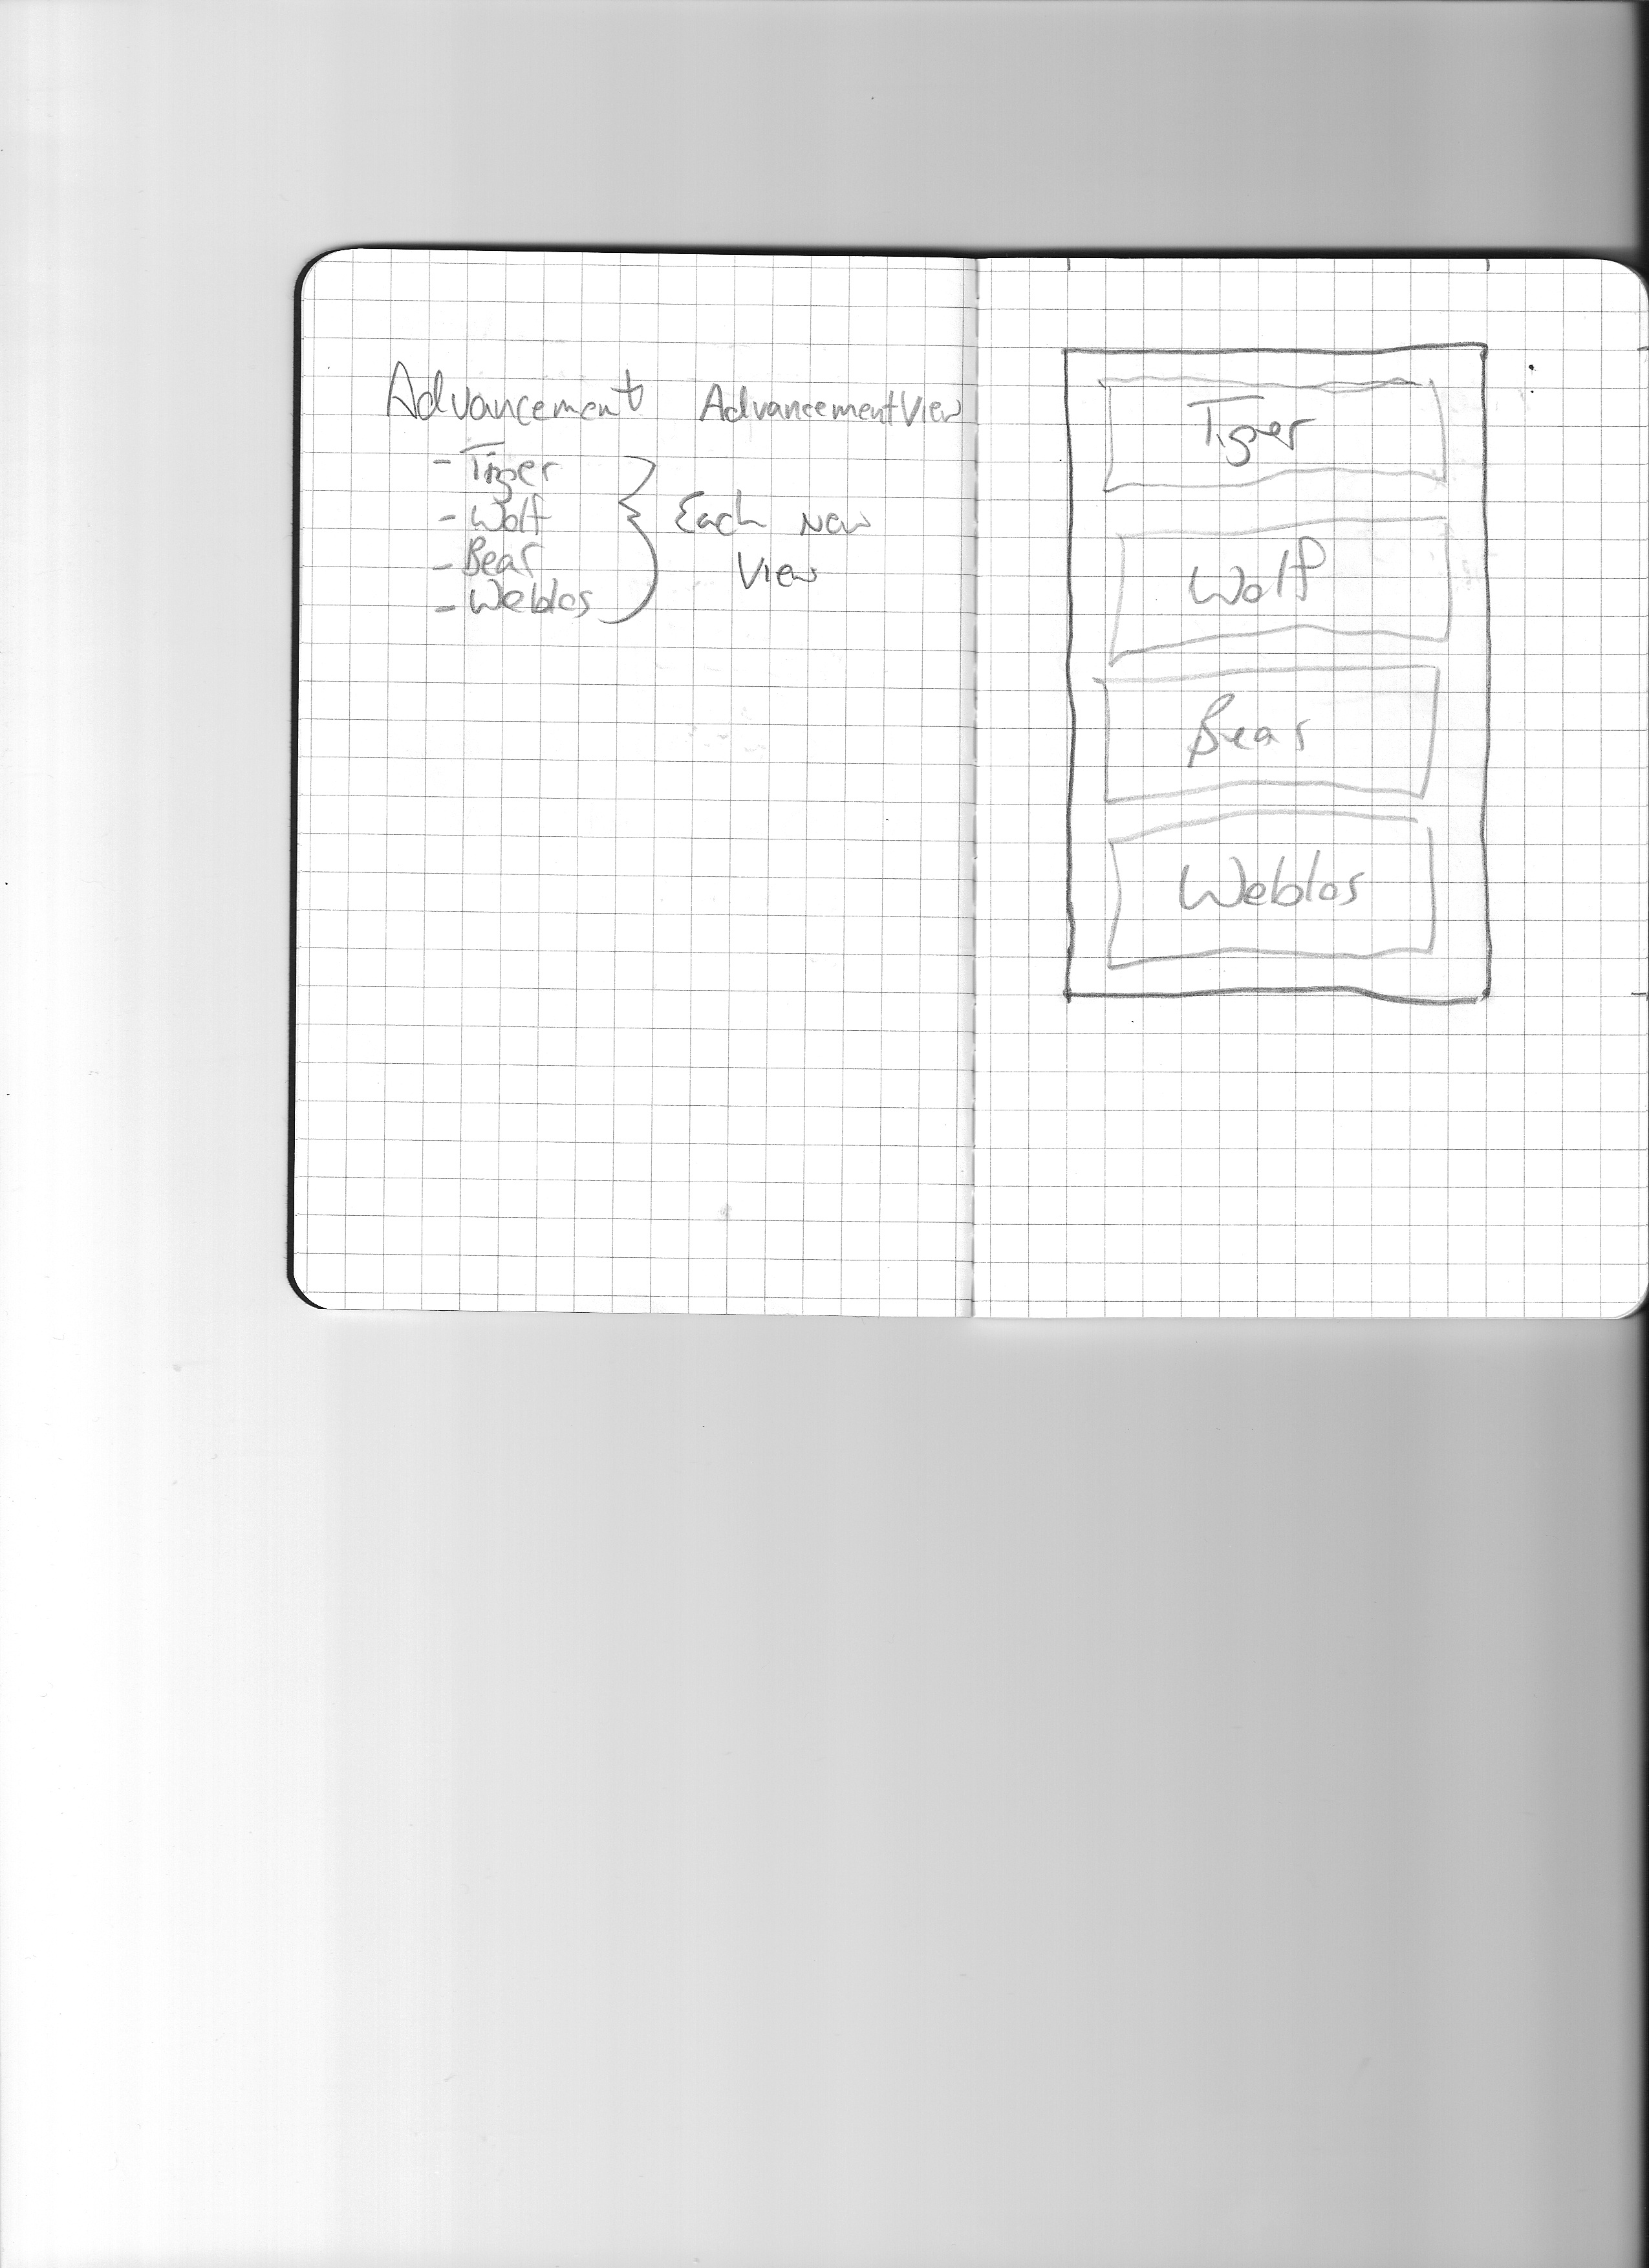 Advancement AdvancementView
- Tiger
- Wolf
- Bear
- Weblos
Each New
View
Tiger
Wolf
Bear
Weblos